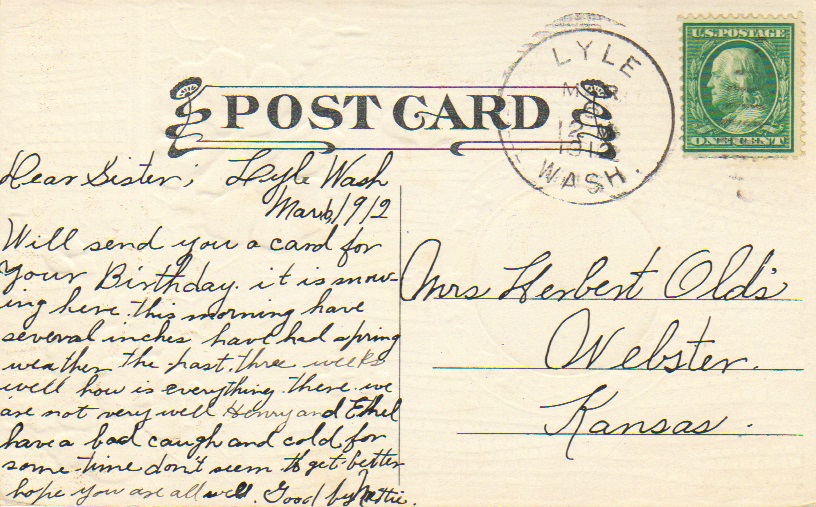 LYLE
MAR
12
WASH.
U.S. POSTAGE
ONE CENT
POST CARD
Dear Sister; Lyle Wash
1912
Will send you a card for
your Birthday. it is snow-
ing here this morning have
several inches have had spring
weather the past three weeks
well how is everything there we
are not very well Henry and Ethel
have a bad caugh and cold for
some time don't seem to get better
hope you are all well. Good by Nettie.
Mrs Herbert Olds
Webster.
Kansas.